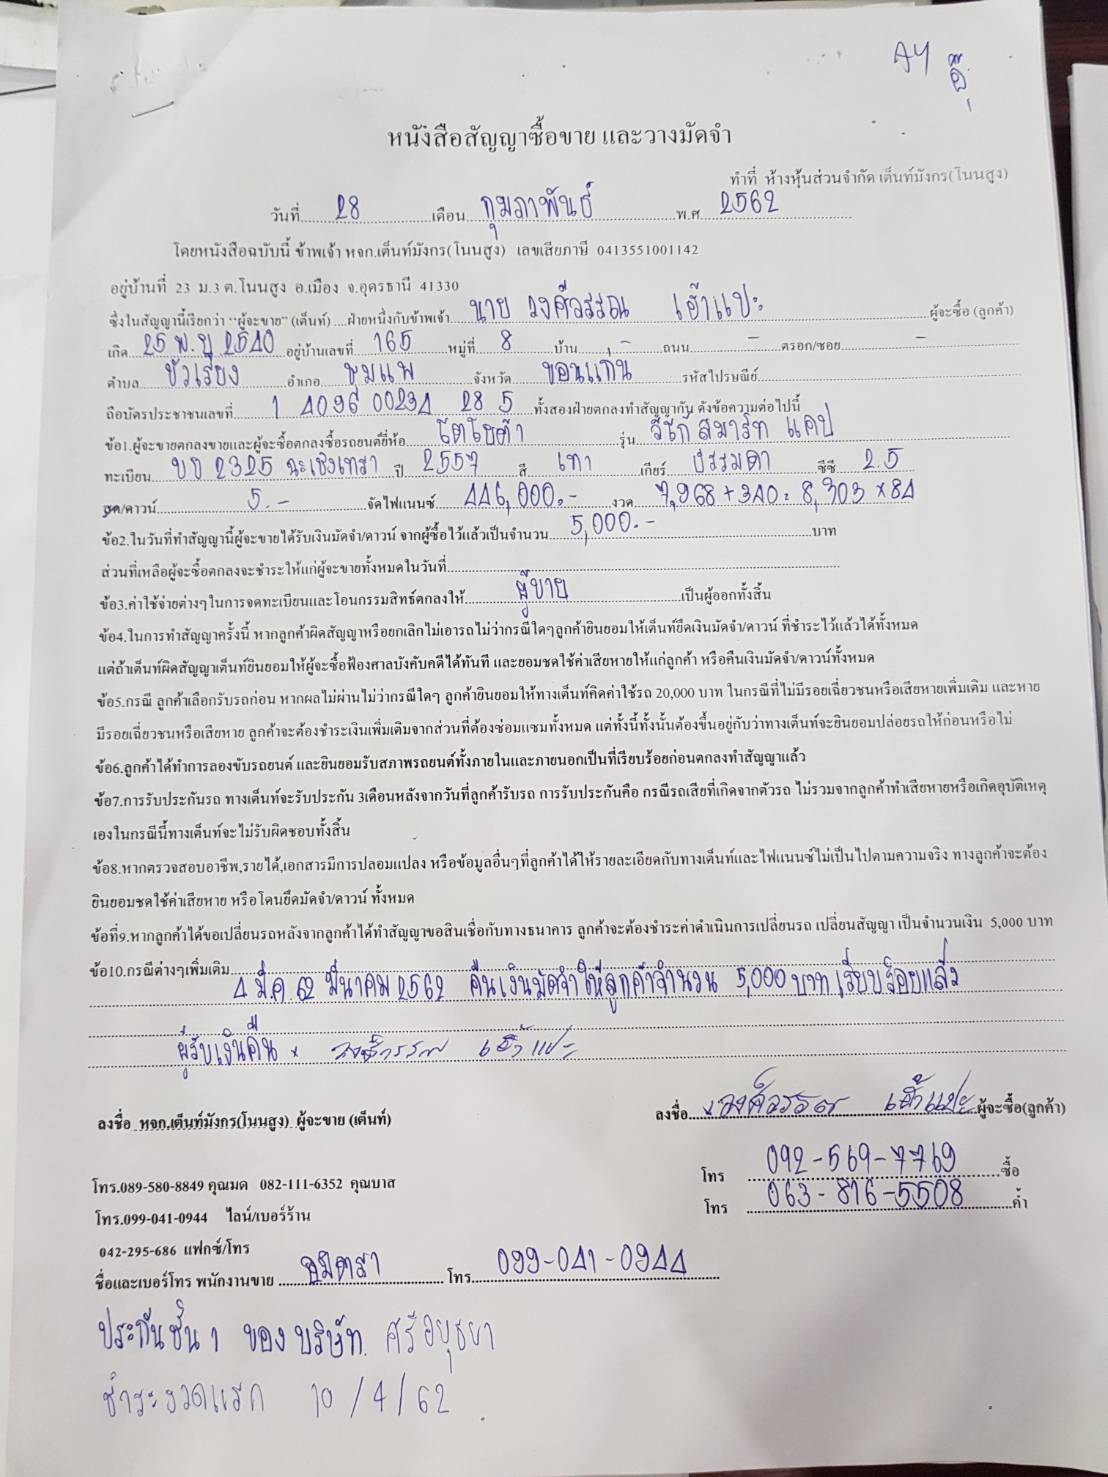 AY อุ๊
หนังสือสัญญาซื้อขาย และวางมัดจำ
ทำที่ ห้างหุ้นส่วนจำกัด เต็นท์มังกร(โนนสูง)
วันที่ 28 เดือน กุมภาพันธ์ พ.ศ 2562
โดยหนังสือฉบับนี้ ข้าพเจ้า หจก.เต็นท์มังกร(โนนสูง) เลขเสียภาษี 0413551001142
อยู่บ้านที่ 23 ม.3 ต.โนนสูง อ.เมือง จ.อุดรธานี 41330
ซึ่งในสัญญานี้เรียกว่า "ผู้จะขาย" (เต็นท์) ....ฝ่ายหนึ่งกับข้าพเจ้า นาย วงศ์วรรณ เฮ้าแปะ ผู้จะซื้อ (ลูกค้า)
เกิด 25 พ.ย 2540 อยู่บ้านเลขที่ 165 หมู่ที่ 8 บ้าน - ถนน - ตรอก/ซอย -
ตำบล บัวเรียง อำเภอ ชุมแพ จังหวัด ขอนแก่น รหัสไปรษณีย์
ถือบัตรประชาชนเลขที่ 1 4098 00234 28 5 ทั้งสองฝ่ายตกลงทำสัญญากัน ดังข้อความต่อไปนี้
ข้อ1.ผู้จะขายตกลงขายและผู้จะซื้อตกลงซื้อรถยนต์ยี่ห้อ โตโยต้า รุ่น วีโก้ สมาร์ท แคป
ทะเบียน บบ 2325 ฉะเชิงเทรา ปี 2557 สี เทา เกียร์ ธรรมดา ซีซี 2.5
ชุด/ดาวน์ 5.- จัดไฟแนนซ์ 446,000.- งวด 7,968+340= 8,303 ×84
ข้อ2.ในวันที่ทำสัญญานี้ผู้จะขายได้รับเงินมัดจำ/ดาวน์ จากผู้ซื้อไว้แล้วเป็นจำนวน 5,000.- บาท
ส่วนที่เหลือผู้จะซื้อตกลงจะชำระให้แก่ผู้จะขายทั้งหมดในวันที่
ข้อ3.ค่าใช้จ่ายต่างๆในการจดทะเบียนและโอนกรรมสิทธ์ตกลงให้ ผู้ขาย เป็นผู้ออกทั้งสิ้น
ข้อ4.ในการทำสัญญาครั้งนี้ หากลูกค้าผิดสัญญาหรือยกเลิกไม่เอารถไม่ว่ากรณีใดๆลูกค้ายินยอมให้เต็นท์ยึดเงินมัดจำ/ดาวน์ ที่ชำระไว้แล้วได้ทั้งหมด
แต่ถ้าเต็นท์ผิดสัญญาเต็นท์ยินยอมให้ผู้จะซื้อฟ้องศาลบังคับคดีได้ทันที และยอมชดใช้ค่าเสียหายให้แก่ลูกค้า หรือคืนเงินมัดจำ/ดาวน์ทั้งหมด
ข้อ5.กรณี ลูกค้าเลือกรับรถก่อน หากผลไม่ผ่านไม่ว่ากรณีใดๆ ลูกค้ายินยอมให้ทางเต็นท์คิดค่าใช้รถ 20,000 บาท ในกรณีที่ไม่มีรอยเฉี่ยวชนหรือเสียหายเพิ่มเติม และหาย
มีรอยเฉี่ยวชนหรือเสียหาย ลูกค้าจะต้องชำระเงินเพิ่มเติมจากส่วนที่ต้องซ่อมแซมทั้งหมด แต่ทั้งนี้ทั้งนั้นต้องขึ้นอยู่กับว่าทางเต็นท์จะยินยอมปล่อยรถให้ก่อนหรือไม่
ข้อ6.ลูกค้าได้ทำการลองขับรถยนต์ และยินยอมรับสภาพรถยนต์ทั้งภายในและภายนอกเป็นที่เรียบร้อยก่อนตกลงทำสัญญาแล้ว
ข้อ7.การรับประกันรถ ทางเต็นท์จะรับประกัน 3เดือนหลังจากวันที่ลูกค้ารับรถ การรับประกันคือ กรณีรถเสียที่เกิดจากตัวรถ ไม่รวมจากลูกค้าทำเสียหายหรือเกิดอุบัติเหตุ
เองในกรณีนี้ทางเต็นท์จะไม่รับผิดชอบทั้งสิ้น
ข้อ8.หากตรวจสอบอาชีพ,รายได้,เอกสารมีการปลอมแปลง หรือข้อมูลอื่นๆที่ลูกค้าได้ให้รายละเอียดกับทางเต็นท์และไฟแนนซ์ไม่เป็นไปตามความจริง ทางลูกค้าจะต้อง
ยินยอมชดใช้ค่าเสียหาย หรือโดนยึดมัดจำ/ดาวน์ ทั้งหมด
ข้อที่9.หากลูกค้าได้ขอเปลี่ยนรถหลังจากลูกค้าได้ทำสัญญาขอสินเชื่อกับทางธนาคาร ลูกค้าจะต้องชำระค่าดำเนินการเปลี่ยนรถ เปลี่ยนสัญญา เป็นจำนวนเงิน 5,000 บาท
ข้อ10.กรณีต่างๆเพิ่มเติม
4 มี.ค 62 มีนาคม 2562 คืนเงินมัดจำให้ลูกค้าจำนวน 5,000 บาท เรียบร้อยแล้ว
ผู้รับเงินคืน x วงศ์วรรณ เฮ้าแปะ
ลงชื่อ หจก.เต็นท์มังกร(โนนสูง) ผู้จะขาย (เต็นท์)
ลงชื่อ x วงศ์วรรณ เฮ้าแปะ ผู้จะซื้อ(ลูกค้า)
โทร 092-569-7769 ซื้อ
โทร.089-580-8849 คุณมด 082-111-6352 คุณบาส
โทร 063-816-5508 ค้ำ
โทร.099-041-0944 ไลน์/เบอร์ร้าน
042-295-686 แฟกซ์/โทร
ชื่อและเบอร์โทร พนักงานขาย โทร 099-041-0944
ประกันชั้น 1 ของ บริษัท ศรีอยุธยา
ชำระงวดแรก 10/4/62